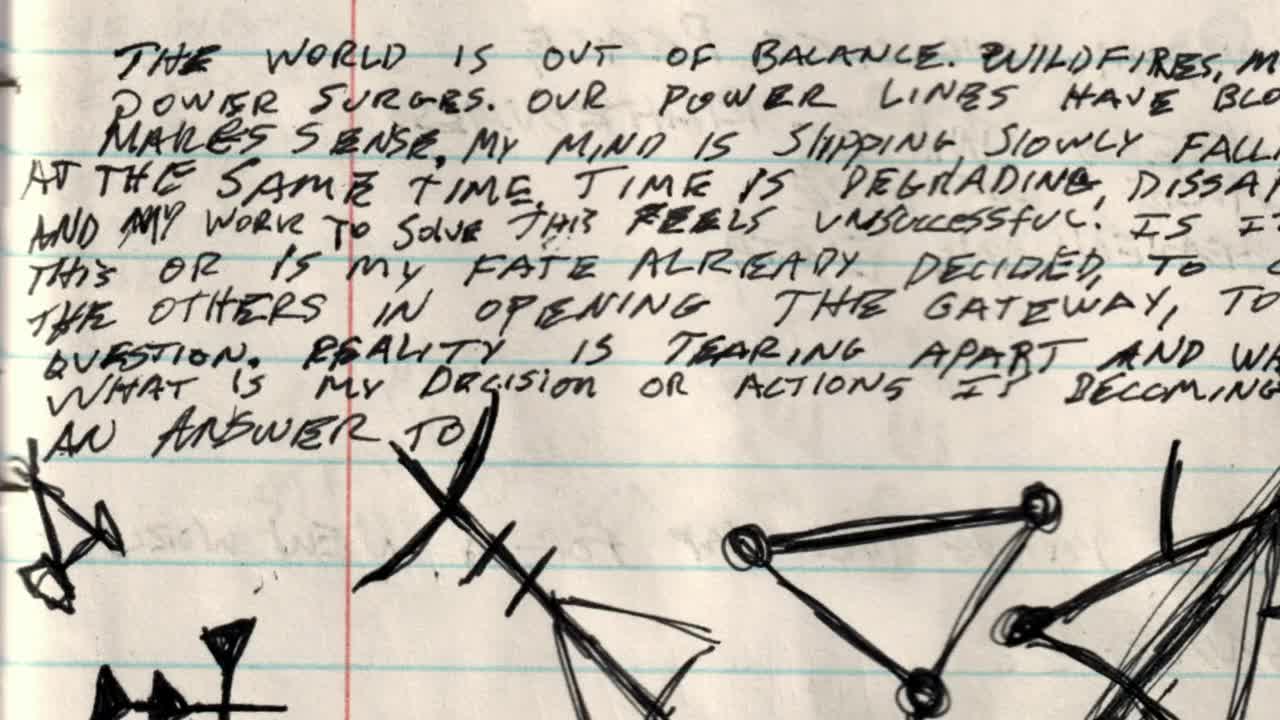 THE WORLD IS OUT OF BALANCE. WILDFIRES,
POWER SURGES. OUR POWER LINES HAVE
MAKES SENSE, MY MIND IS SLIPPING SLOWLY
AT THE SAME TIME. TIME IS DEGRADING,
AND MY WORK TO SOLVE THIS FEELS UNSUCCESSFUL. IS
THIS OR IS MY FATE ALREADY DECIDED, TO
THE OTHERS IN OPENING THE GATEWAY, TO
QUESTION. REALITY IS TEARING APART AND
WHAT IS MY DECISION OR ACTIONS IS BECOMING
AN ANSWER TO